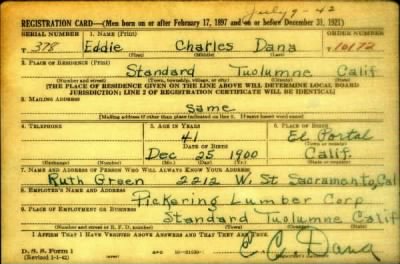 July 9 - 42
REGISTRATION CARD—(Men born on or after February 17, 1897 and on or before December 31, 1921)
SERIAL NUMBER 1. NAME (Print) ORDER NUMBER
T 378 Eddie Charles Dana 10172
(First) (Middle) (Last)
2. PLACE OF RESIDENCE (Print)
Standard Tuolumne Calif
(Number and street) (Town, township, village, or city) (County) (State)
(THE PLACE OF RESIDENCE GIVEN ON THE LINE ABOVE WILL DETERMINE LOCAL BOARD
JURISDICTION; LINE 2 OF REGISTRATION CERTIFICATE WILL BE IDENTICAL)
3. MAILING ADDRESS
Same
(Mailing address if other than place indicated on line 2. If same insert word same)
4. TELEPHONE 5. AGE IN YEARS 6. PLACE OF BIRTH
41 El Portal
DATE OF BIRTH (Town or county)
Dec 25 1900 Calif.
(Exchange) (Number) (Mo.) (Day) (Yr.) (State or country)
7. NAME AND ADDRESS OF PERSON WHO WILL ALWAYS KNOW YOUR ADDRESS
Ruth Green 2212 W. St Sacramento, Cal
8. EMPLOYER'S NAME AND ADDRESS
Pickering Lumber Corp
9. PLACE OF EMPLOYMENT OR BUSINESS
Standard Tuolumne Calif
(Number and street or R. F. D. number) (Town) (County) (State)
I AFFIRM THAT I HAVE VERIFIED ABOVE ANSWERS AND THAT THEY ARE TRUE.
D. S. S. Form 1
(Revised 1-1-42) (over) E C Dana
(Registrant's signature)